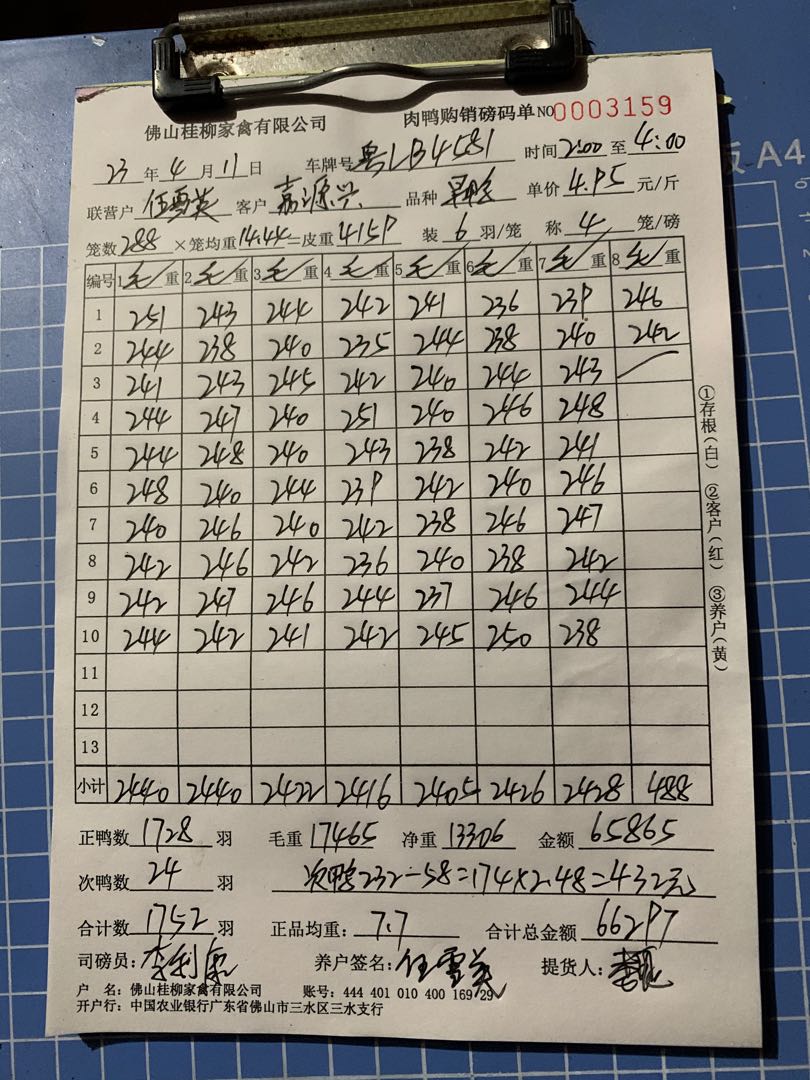 佛山桂柳家禽有限公司 肉鸭购销磅码单 NO 0003159
23 年 4 月 11 日 车牌号 粤LB4581 时间 2:00 至 4:00
联营户 任雪英 客户 嘉源兴 品种 单价 4.95 元/斤
笼数 288 ×笼均重 14.44 =皮重 4159 装 6 羽/笼 称 4 笼/磅
编号 1 毛/重 2 毛/重 3 毛/重 4 毛/重 5 毛/重 6 毛/重 7 毛/重 8 毛/重
1 251 243 244 242 241 236 239 246
2 244 238 240 235 244 238 240 242
3 241 243 245 242 240 244 243
4 244 247 240 251 240 246 248
5 244 248 240 243 238 242 241
6 248 240 244 239 242 240 246
7 240 246 240 242 238 246 247
8 242 246 242 236 240 238 242
9 242 247 246 244 237 246 244
10 244 242 241 242 245 250 238
11
12
13
小计 2440 2440 2422 2416 2405 2426 2428 488
正鸭数 1728 羽 毛重 17465 净重 13306 金额 65865
次鸭数 24 羽 次鸭232-58=174×2.48=432元
合计数 1752 羽 正品均重: 7.7 合计总金额 66297
司磅员: 李利康 养户签名: 任雪英 提货人:
户 名: 佛山桂柳家禽有限公司 账号: 444 401 010 400 169 29
开户行: 中国农业银行广东省佛山市三水区三水支行
①存根(白) ②客户(红) ③养户(黄)
板 A4